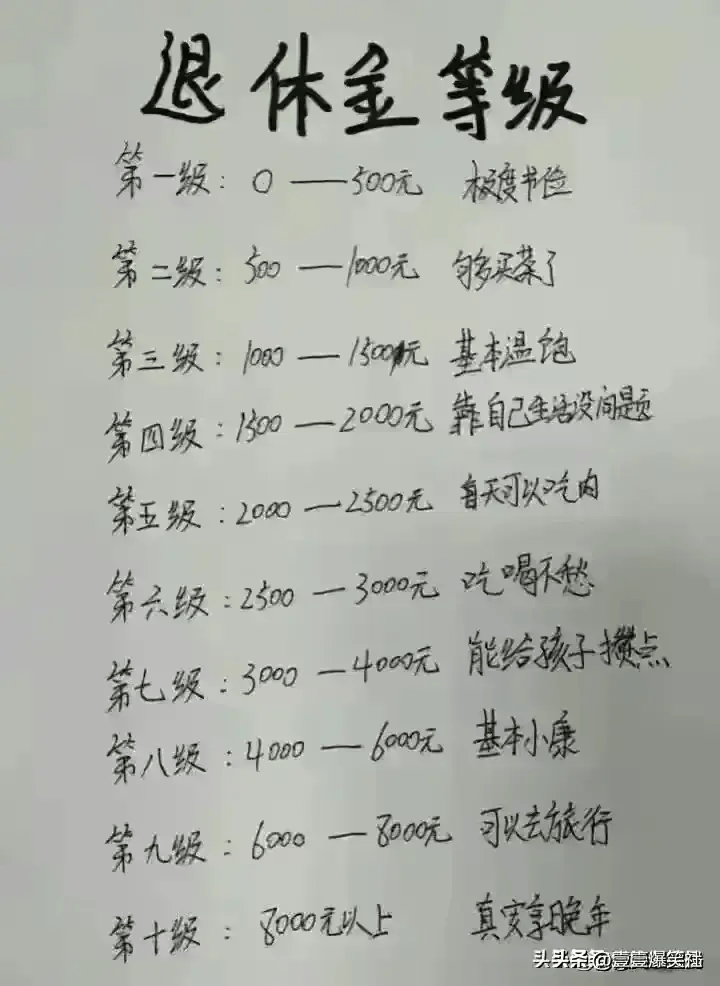 退休金等级
第一级：0——500元 极度节俭
第二级：500——1000元 够买菜了
第三级：1000——1500元 基本温饱
第四级：1500——2000元 靠自己生活没问题
第五级：2000——2500元 每天可以吃肉
第六级：2500——3000元 吃喝不愁
第七级：3000——4000元 能给孩子攒点
第八级：4000——6000元 基本小康
第九级：6000——8000元 可以去旅行
第十级：8000元以上 真实享晚年
头条 @壹壹爆笑